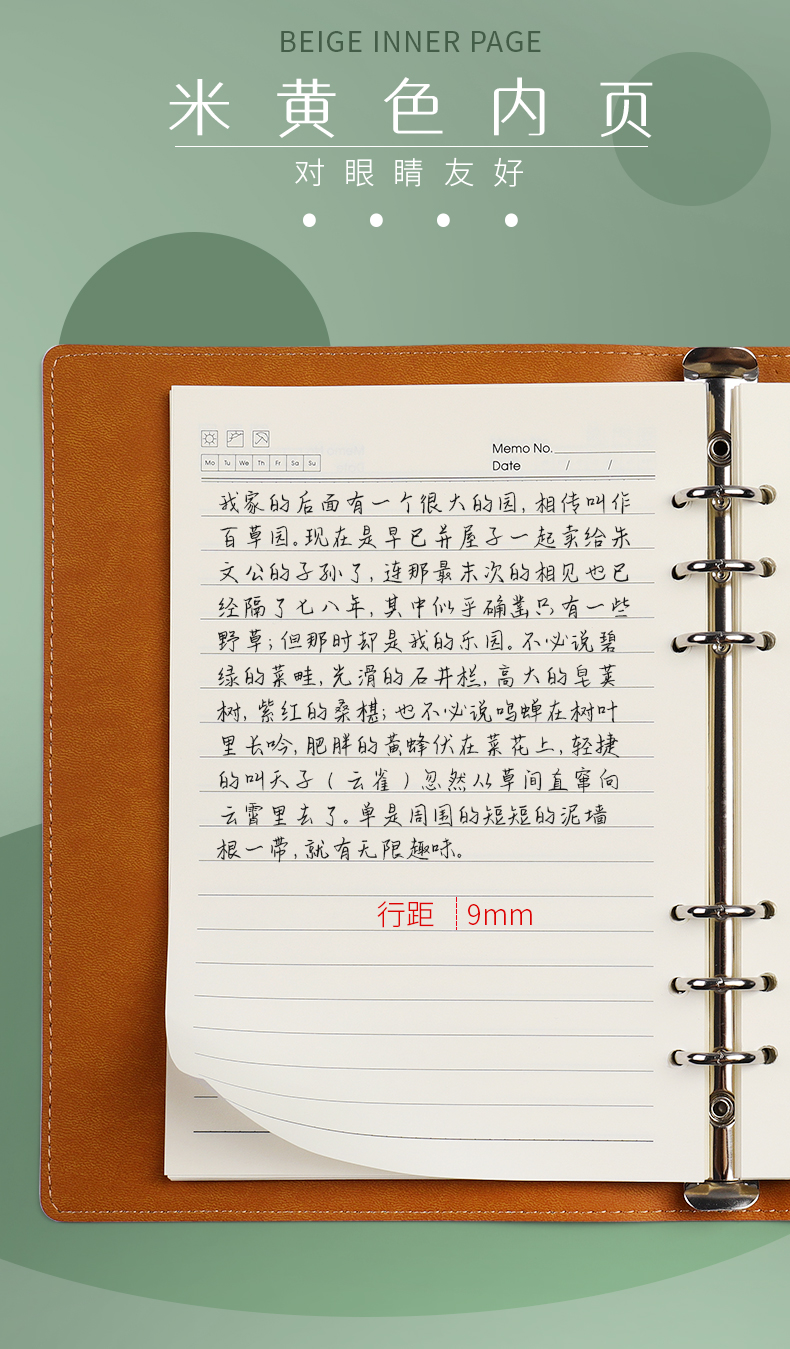 BEIGE INNER PAGE
米黄色内页
对眼睛友好
Memo No.
Mo Tu We Th Fr Sa Su
Date / /
我家的后面有一个很大的园,相传叫作
百草园。现在是早已并屋子一起卖给朱
文公的子孙了,连那最末次的相见也已
经隔了七八年,其中似乎确凿只有一些
野草;但那时却是我的乐园。不必说碧
绿的菜畦,光滑的石井栏,高大的皂荚
树,紫红的桑椹;也不必说鸣蝉在树叶
里长吟,肥胖的黄蜂伏在菜花上,轻捷
的叫天子(云雀)忽然从草间直窜向
云霄里去了。单是周围的短短的泥墙
根一带,就有无限趣味。
行距 9mm